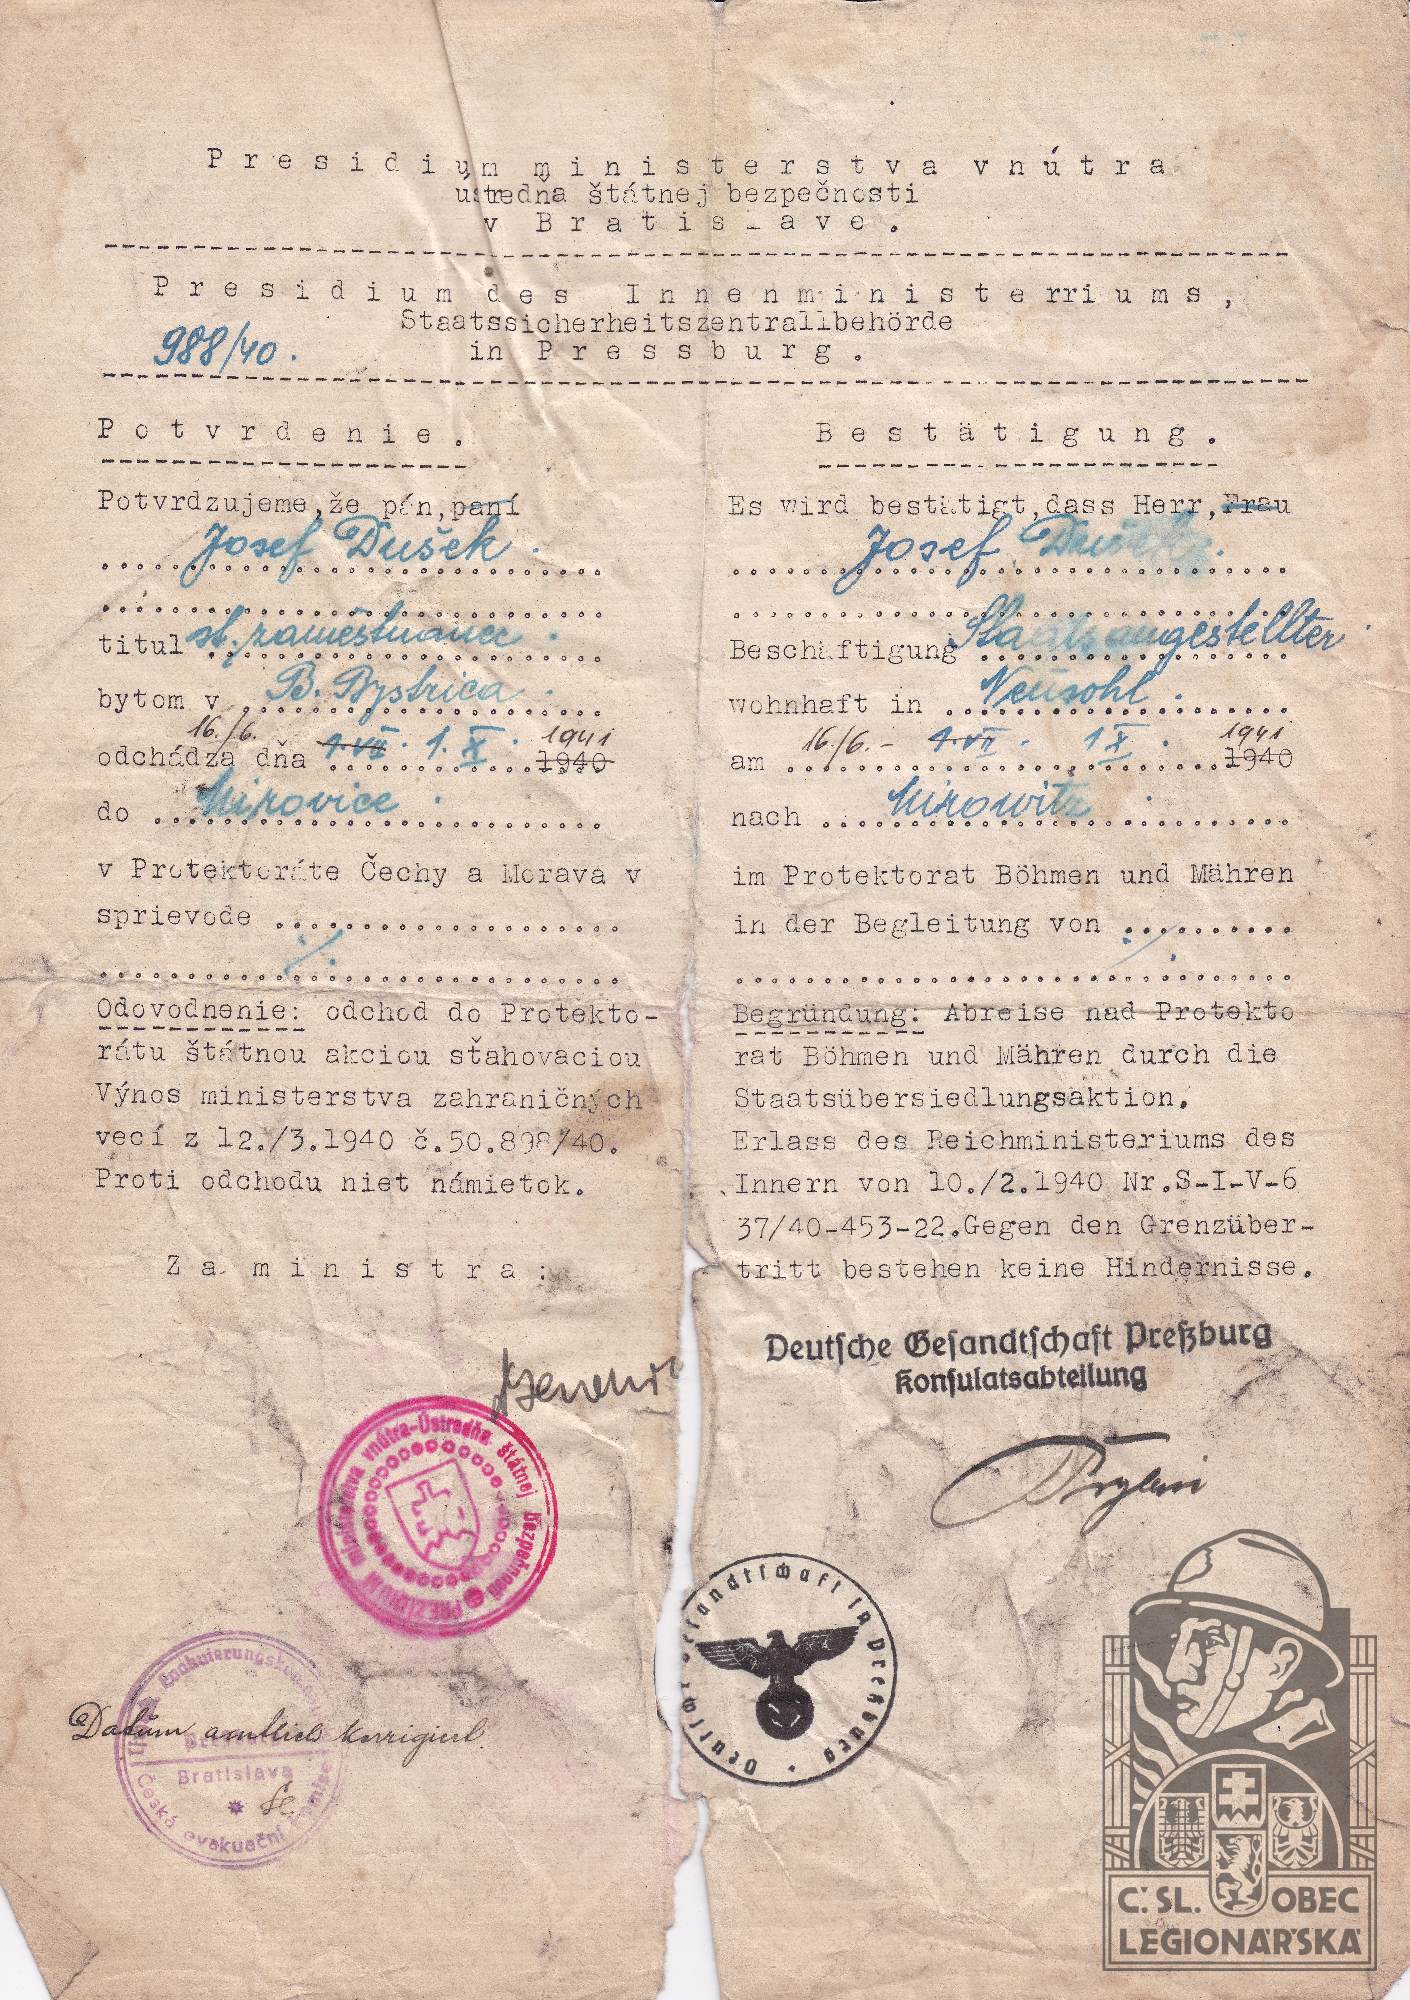 Presidium ministerstva vnútra
ústredňa štátnej bezpečnosti
v Bratislave.
Presidium des Innenministerriums,
Staatssicherheitszentrallbehörde
988/40.
in Pressburg.
Potvrdenie.
Potvrdzujeme,že pán,paní
Josef Dušek.
titul st. zaměstnanec.
bytom v B. Bystrica.
16./6.
odchádza dňa 1.VII. 1.X. 1940 1941
do Mirovice.
v Protektoráte Čechy a Morava v
sprievode
./.
Odovodnenie: odchod do Protekto-
rátu štátnou akciou sťahovaciou
Výnos ministerstva zahraničných
vecí z 12./3.1940 č.50.898/40.
Proti odchodu niet námietok.
Za ministra:
Bestätigung.
Es wird bestätigt,dass Herr,Frau
Josef Dušek.
Beschäftigung Staatsangestellter.
wohnhaft in Neusohl.
am 16/6.- 1.VII. 1X. 1940 1941
nach Mirowitz.
im Protektorat Böhmen und Mähren
in der Begleitung von
./.
Begründung: Abreise nad Protekto
rat Böhmen und Mähren durch die
Staatsübersiedlungsaktion.
Erlass des Reichministeriums des
Innern von 10./2.1940 Nr.S-I-V-6
37/40-453-22.Gegen den Grenzüber-
tritt bestehen keine Hindernisse.
Deutsche Gesandtschaft Preßburg
Konsulatsabteilung
PREZÍDIUM ministerstva vnútra-Ústredňa štátnej bezpečnosti
Deutsche Gesandtschaft in Preßburg
Datum amtlich korrigiert.
Bratislava
Česká evakuační komise
Č.SL. OBEC
LEGIONÁŘSKÁ